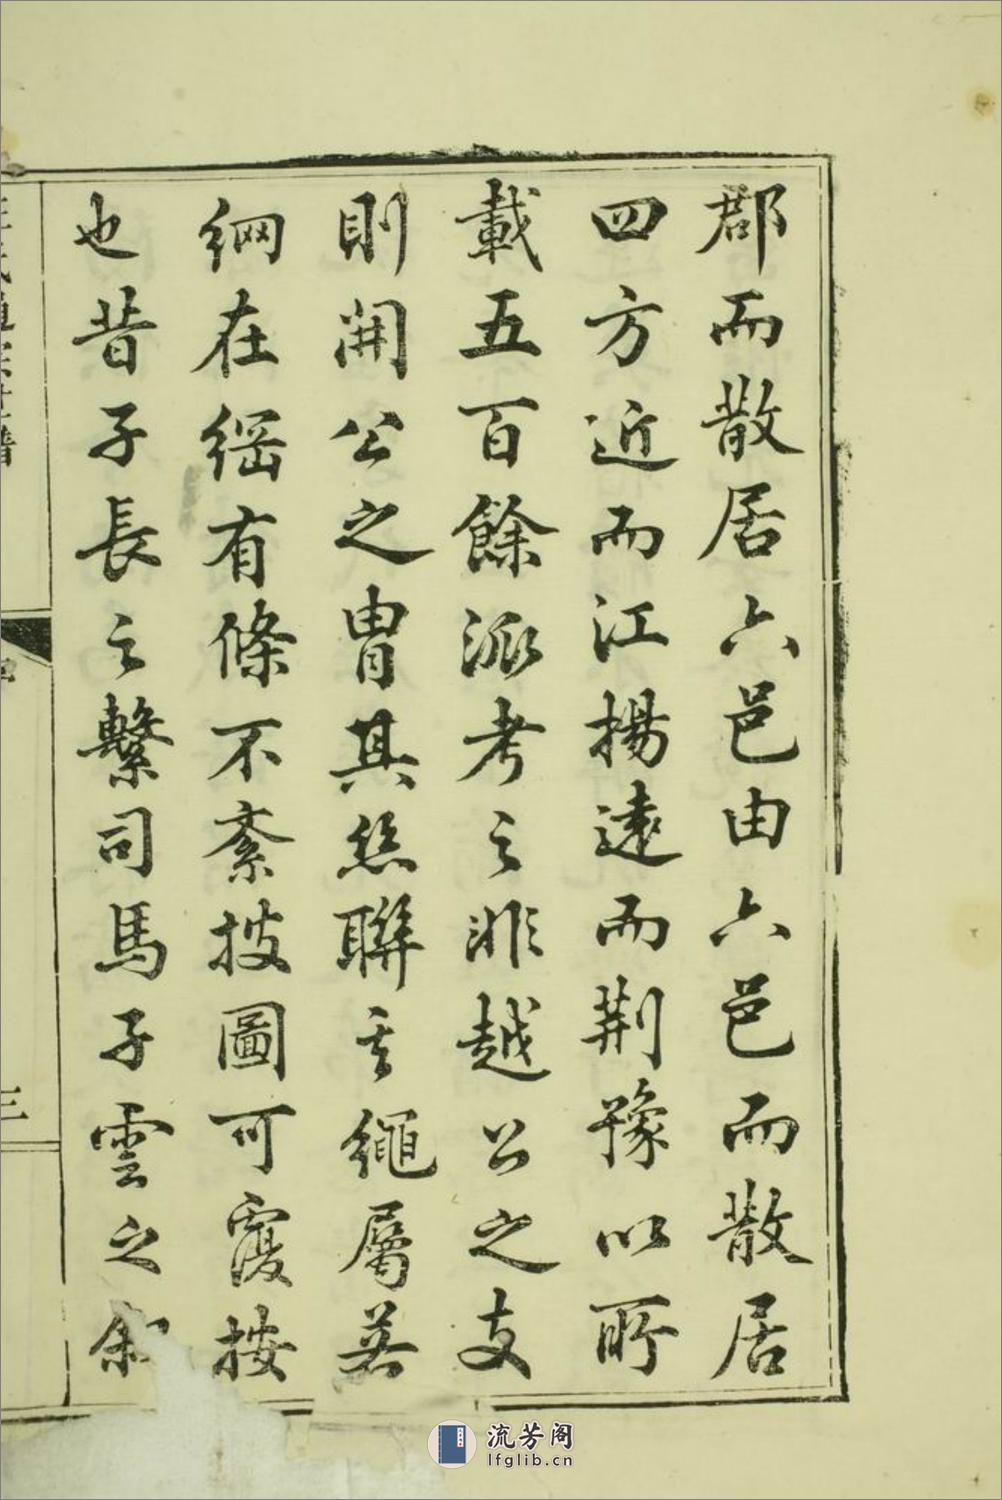 郡而散居六邑由六邑而散居
四方近而江揚遠而荆豫以所
載五百餘派考之非越公之支
則開公之胄其絲聯其繩屬若
綱在綱有條不紊披圖可覆按
也昔子長之繫司馬子雲之叙
汪氏通宗世譜
三
流芳阁
lfglib.cn